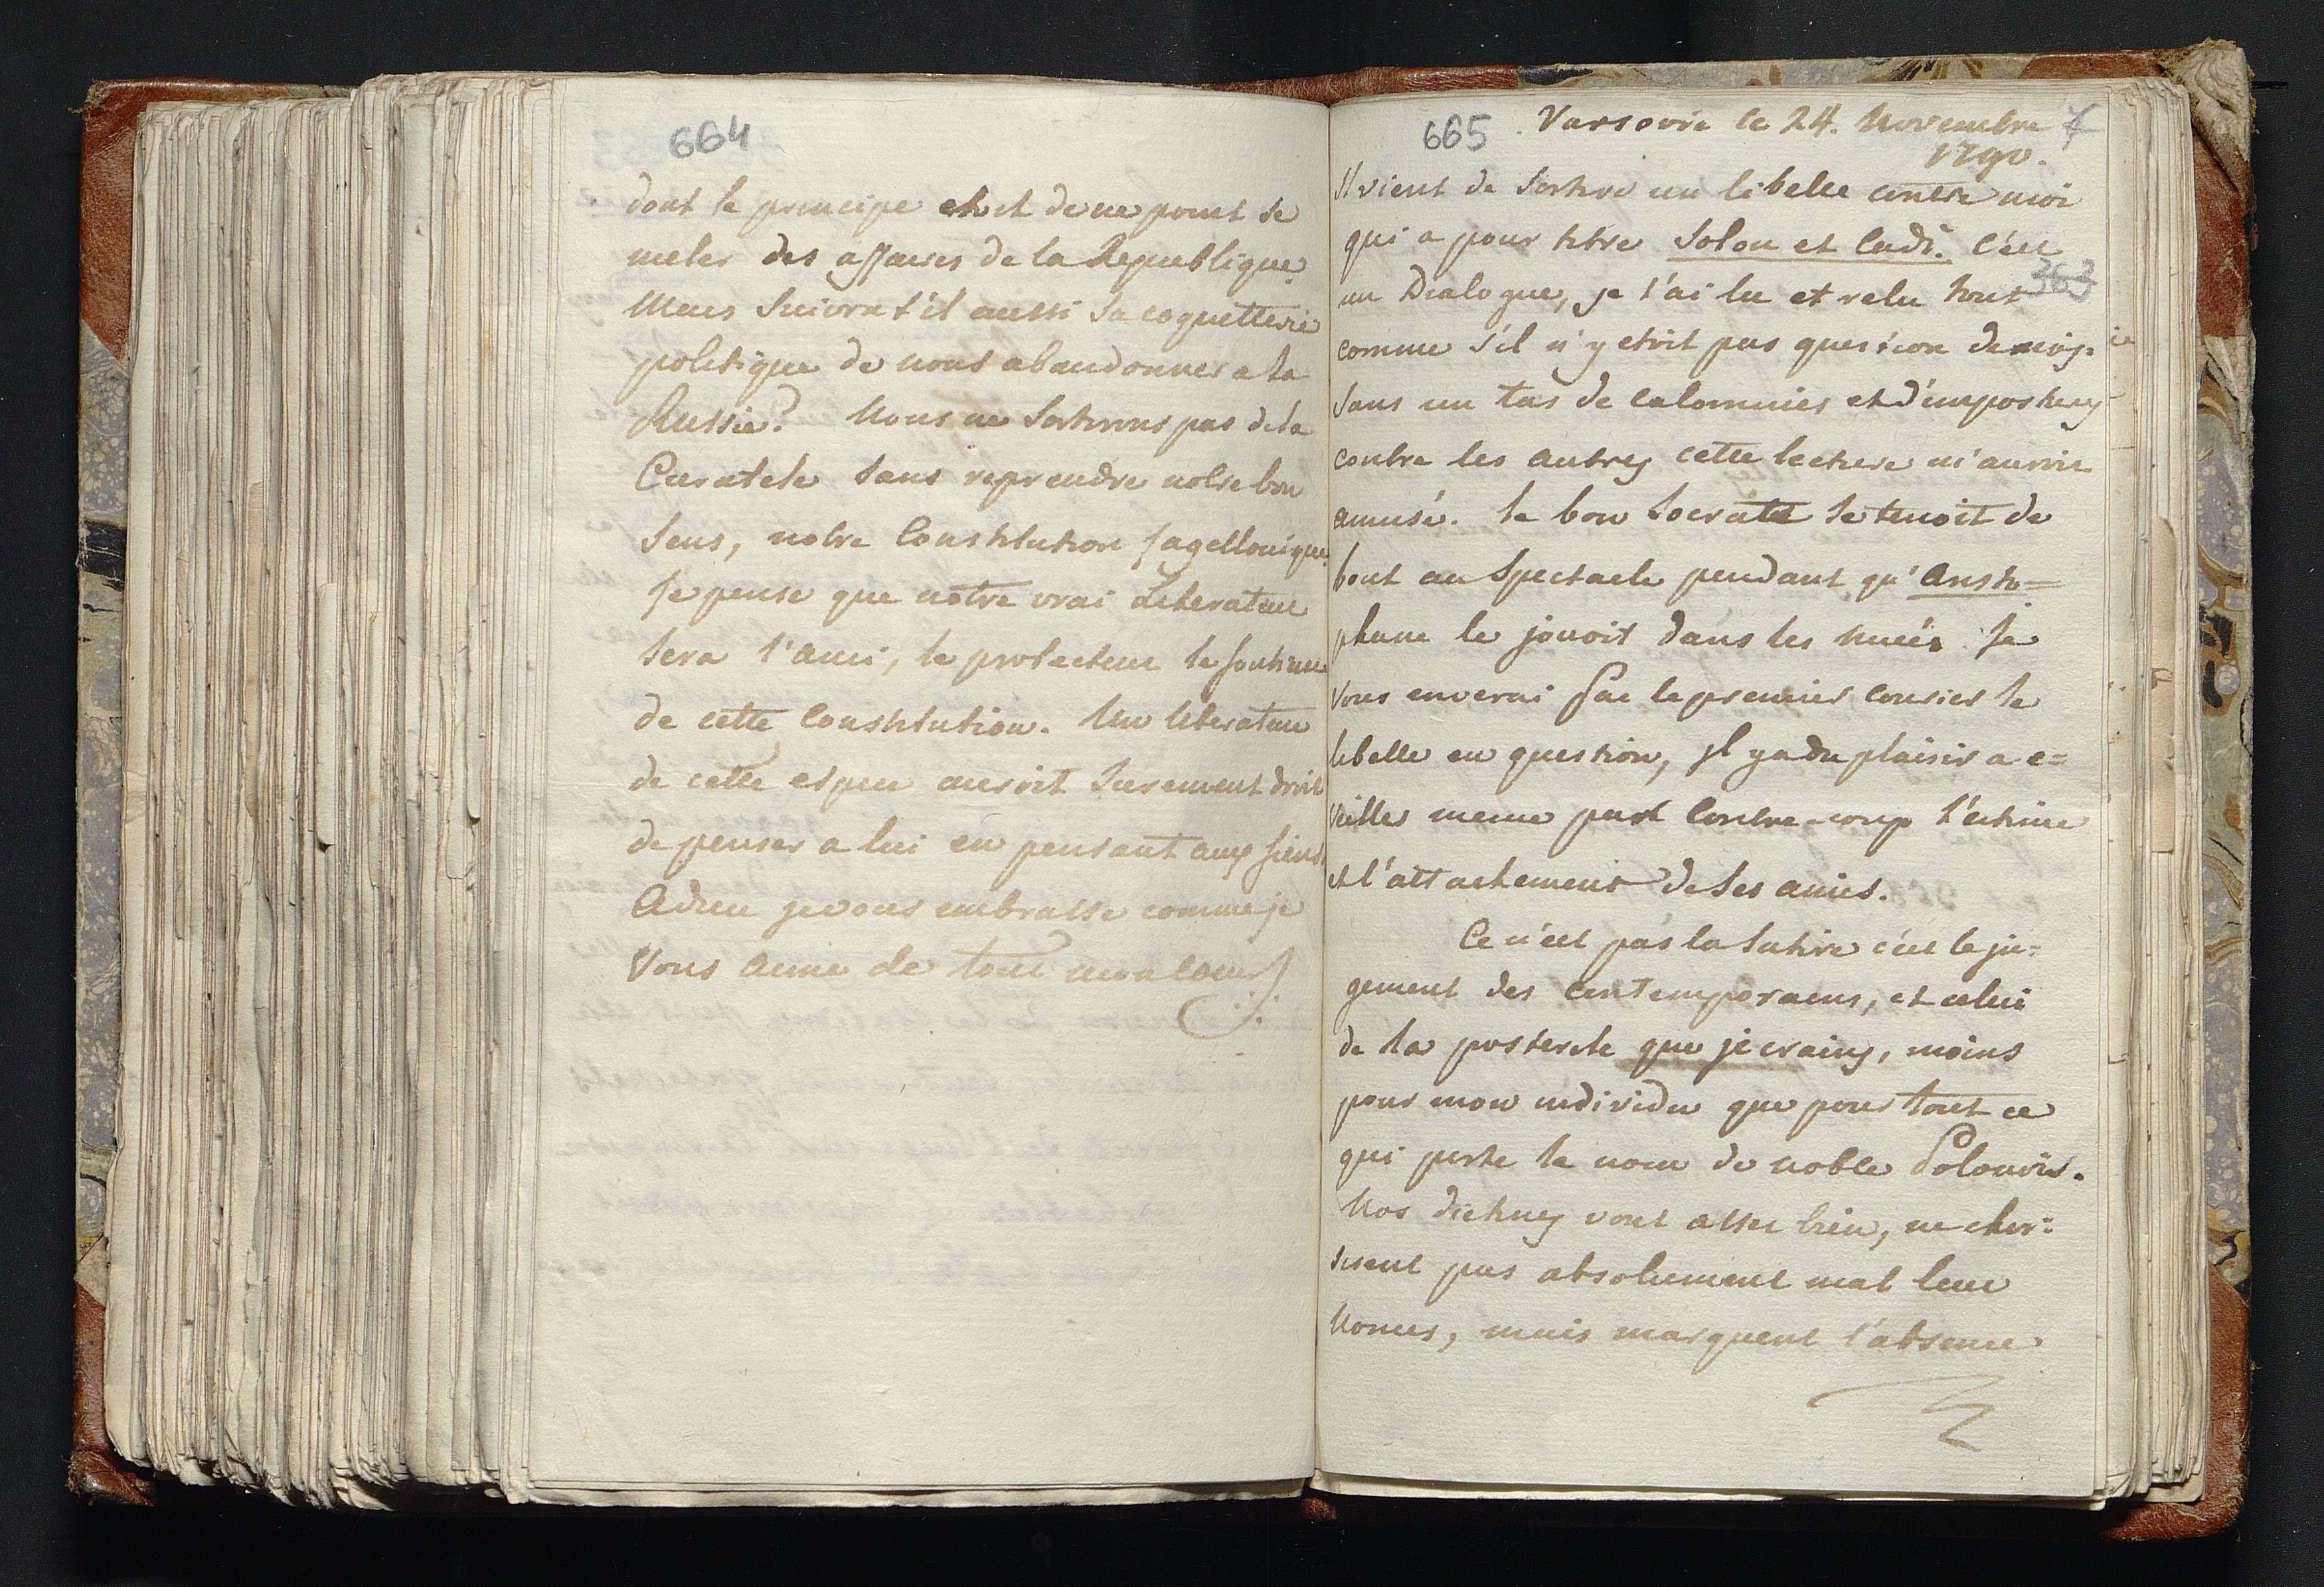 664
dont le principe etoit de ne point se
meler des affaires de la Republique.
Mais Suivra t'il aussi Sa coquetterie
politique de nous abandonner a la
Russie? Nous ne Sortirons pas de la
Curatele Sans reprendre notre bon
Sens, notre Constitution Jagellonique
Je pense que notre vrai Liberateur
Sera l'ami, le protecteur le soutien
de cette Constitution. Un liberateur
de cette espece auroit Surement droit
de penser a lui en pensant aux siens
Adieu je vous embrasse comme je
Vous aime de tout mon coeur
665 Varsovie le 24. Novembre
1790.
Il vient de Sortir un libelle contre moi
qui a pour titre Solon et Cadi. C'est
363
un Dialogue, je l'ai lu et relu tout
comme s'il n'y etoit pas question de moi.
Sans un tas de calomnies et d'impostures
contre les autres cette lecture m'auroit
amusé. le bon Socrate se tenoit de
bout au Spectacle pendant qu'Aristo=
phane le jouoit dans les nuées. Je
vous enverai par le premier Courier le
libelle en question, Il y a du plaisir a e=
veiller meme par Contre-coup l'estime
et l'attachement de Ses amis.
Ce n'est pas la Satire c'est le ju=
gement des contemporains, et celui
de la posterite que je crains, moins
pour mon individu que pour tout ce
qui porte le nom de noble Polonois.
Nos dietines vont assez bien, ne choi=
sisent pas absolument mal leur
Nonces, mais marquent l'absence